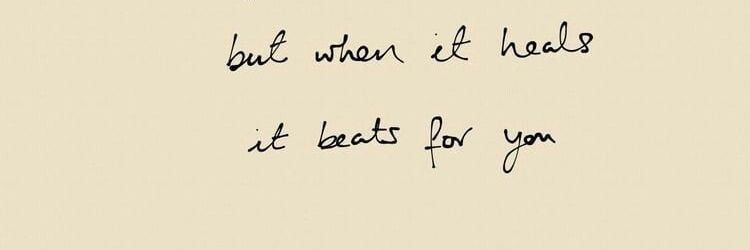 but when it heals
it beats for you